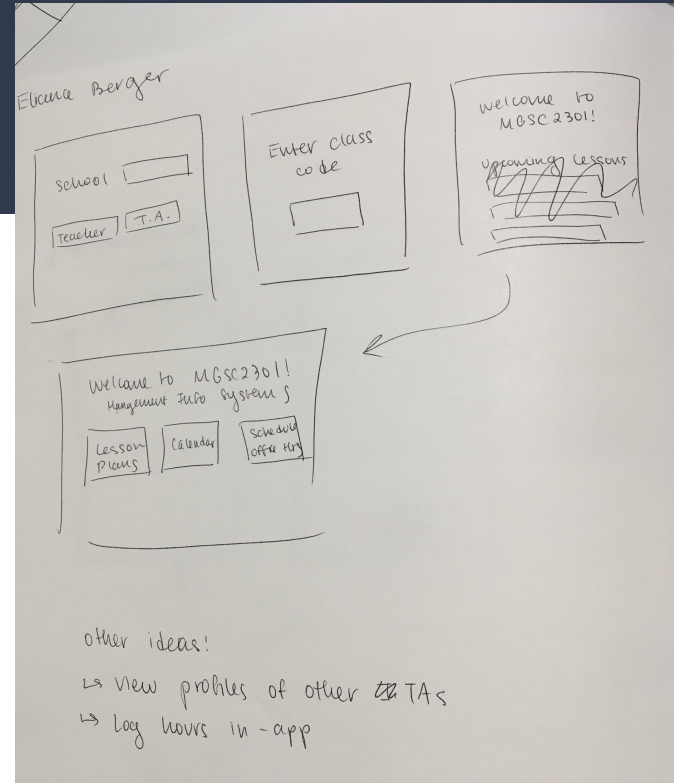 Eliana Berger
School
Teacher
T.A.
Enter class
code
Welcome to
MGSC2301!
Upcoming lessons
Welcome to MGSC2301!
Mangement Info Systems
Lesson
Plans
Calendar
Schedule
Office Hrs
other ideas!
↳ View profiles of other TAs
↳ Log hours in-app